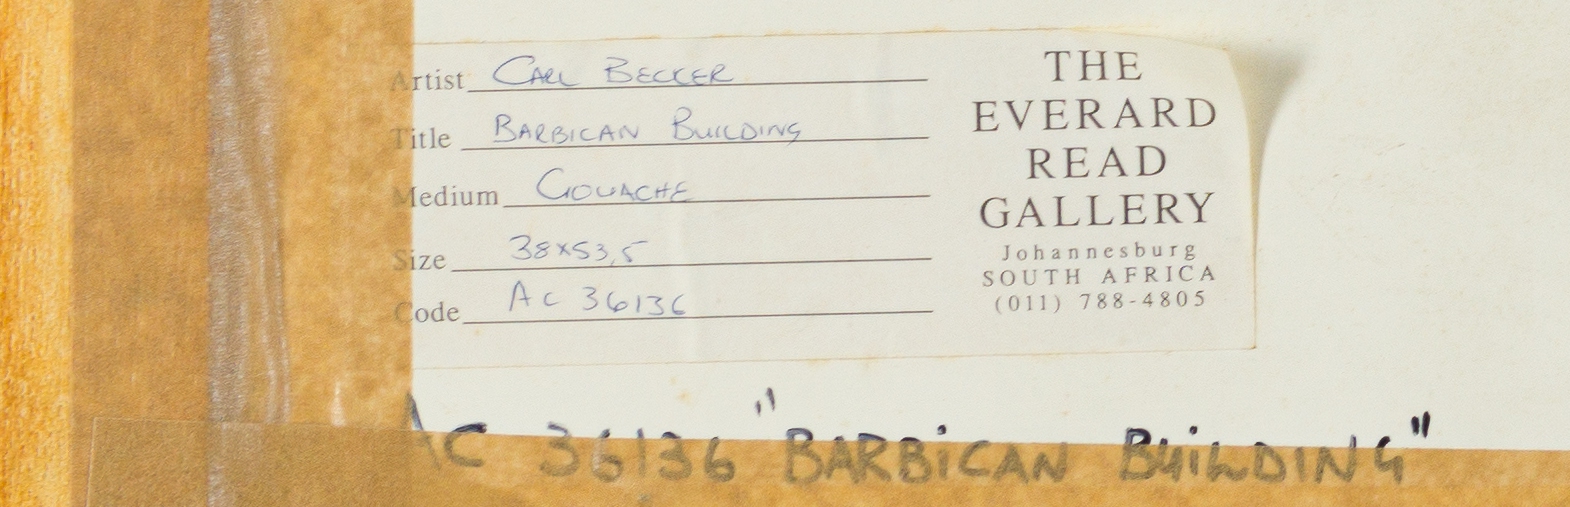 Artist CARL BECKER
Title BARBICAN BUILDING
Medium GOUACHE
Size 38x53,5
Code AC 36136
THE
EVERARD
READ
GALLERY
Johannesburg
SOUTH AFRICA
(011) 788-4805
AC 36136 "BARBiCAN BUiLDING"